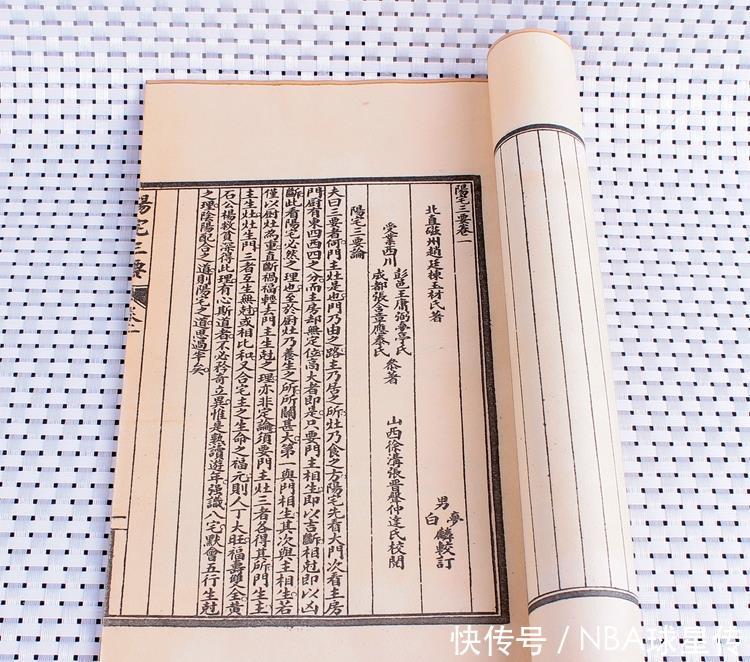 陽宅三要卷一
北直磁州趙廷棟玉材氏著
受業西川
彭邑王庸弼夢亭氏
成都張含章應泰氏
叅著
山西徐溝張晋聲仲達氏校閱
男
夢
白
麟較訂
陽宅三要論
夫曰三要者何門主灶是也門乃由之路主乃居之所灶乃食之方陽宅先看大門次看主房
門厨有東四西四之分而主房却無定位高大者即是只要門主相生即以吉斷相尅即以凶
斷此看陽宅必然之理也至於厨灶乃養生之所所關甚大第一與門相生其次與主相生若
僅以厨灶為重直斷禍福輕去門主生尅之理亦非定論須要門主灶三者各得其所門生主
主生灶灶生門三者互生無尅或相比和又合宅主之生命之福元則人丁大旺福壽雙全黄
石公楊救貧深得此理有心斯道者不必矜奇立異惟是熟讀遊年强識八宅默會五行生尅
之理陰陽配合之道則陽宅之道思過半矣
陽宅三要
卷一
一
快传号 / NBA球星传